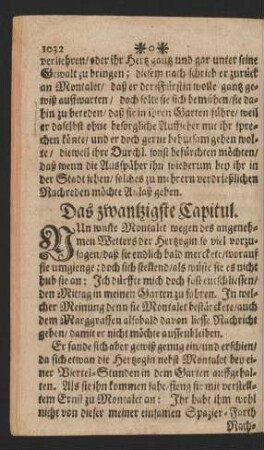 1032 ❉ o ❉
verliehren/ oder ihr Hertz gantz und gar unter seine
Gewalt zu bringen; diesem nach schrieb er zurück
an Montalet/ daß er der Fürstin wolle gantz ge-
wiß auffwarten/ doch solte sie sich bemühen/ sie da-
hin zu bereden/ daß sie in ihren Garten führe/ weil
er daselbst ohne besorgliche Auffseher mit ihr spre-
chen könte/ und er doch gerne behutsam gehen wol-
te/ dieweil ihre Durchl. sonst befürchten möchten/
daß wenn die Ausspäher ihn wiederum bey ihr in
der Stadt sehen/ solches zu mehrern verdrießlichen
Nachreden möchte Anlaß geben.
Das zwantzigste Capitul.
NUn wuste Montalet wegen des angeneh-
men Wetters der Hertzogin so viel vorzu-
sagen/ daß sie endlich bald merckete/ worauf
sie umgienge; doch sich stellend/ als wüste sie es nicht
hub sie an: Ich dürffte mich doch fast entschliessen/
den Mittag in meinen Garten zu fahren. In wel-
cher Meinung denn sie Montalet bestärckete/ auch
dem Marggraffen alsobald davon liesse Nachricht
geben/ damit er nicht möchte aussenbleiben.
Er fande sich aber gewiß genug ein/ und erschien/
da sich etwan die Hertzogin nebst Montalet bey ei-
ner Viertel-Stunden in dem Garten auffgehal-
ten. Als sie ihn kommen sahe/ fieng sie mit verstell-
tem Ernst zu Montalet an: Ihr habt ihm wohl
nicht von dieser meiner einsamen Spazier-Farth
Nach-